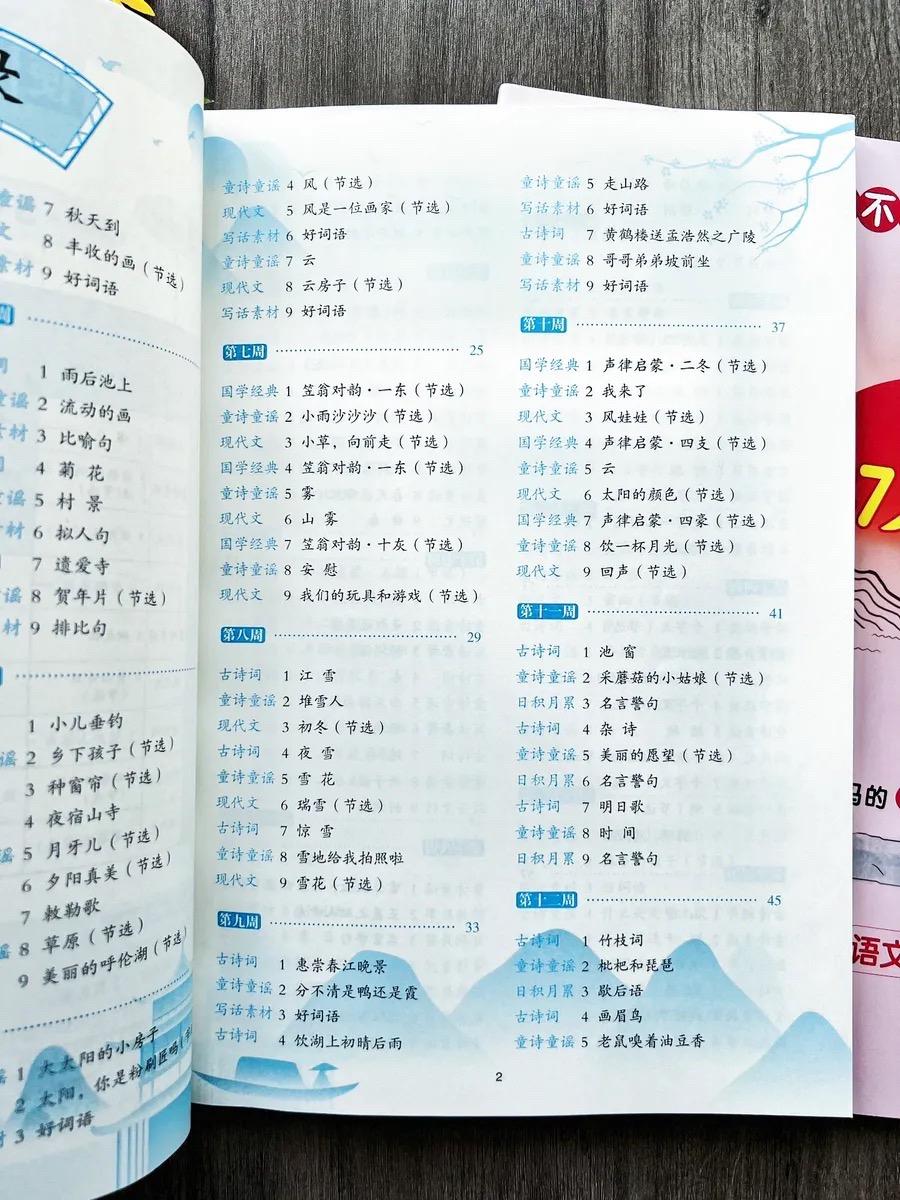 7 秋天到
8 丰收的画（节选）
9 好词语
1 雨后池上
2 流动的画
3 比喻句
4 菊 花
5 村 景
6 拟人句
7 遗爱寺
8 贺年片（节选）
9 排比句
1 小儿垂钓
2 乡下孩子（节选）
3 种窗帘（节选）
4 夜宿山寺
5 月牙儿（节选）
6 夕阳真美（节选）
7 敕勒歌
8 草原（节选）
9 美丽的呼伦湖（节选）
1 大太阳的小房子
2 太阳，你是粉刷匠吗
3 好词语
童诗童谣 4 风（节选）
现代文 5 风是一位画家（节选）
写话素材 6 好词语
童诗童谣 7 云
现代文 8 云房子（节选）
写话素材 9 好词语
第七周 25
国学经典 1 笠翁对韵·一东（节选）
童诗童谣 2 小雨沙沙沙（节选）
现代文 3 小草，向前走（节选）
国学经典 4 笠翁对韵·一东（节选）
童诗童谣 5 雾
现代文 6 山 雾
国学经典 7 笠翁对韵·十灰（节选）
童诗童谣 8 安 慰
现代文 9 我们的玩具和游戏（节选）
第八周 29
古诗词 1 江 雪
童诗童谣 2 堆雪人
现代文 3 初冬（节选）
古诗词 4 夜 雪
童诗童谣 5 雪 花
现代文 6 瑞雪（节选）
古诗词 7 惊 雪
童诗童谣 8 雪地给我拍照啦
现代文 9 雪花（节选）
第九周 33
古诗词 1 惠崇春江晚景
童诗童谣 2 分不清是鸭还是霞
写话素材 3 好词语
古诗词 4 饮湖上初晴后雨
童诗童谣 5 走山路
写话素材 6 好词语
古诗词 7 黄鹤楼送孟浩然之广陵
童诗童谣 8 哥哥弟弟坡前坐
写话素材 9 好词语
第十周 37
国学经典 1 声律启蒙·二冬（节选）
童诗童谣 2 我来了
现代文 3 风娃娃（节选）
国学经典 4 声律启蒙·四支（节选）
童诗童谣 5 云
现代文 6 太阳的颜色（节选）
国学经典 7 声律启蒙·四豪（节选）
童诗童谣 8 饮一杯月光（节选）
现代文 9 回声（节选）
第十一周 41
古诗词 1 池 窗
童诗童谣 2 采蘑菇的小姑娘（节选）
日积月累 3 名言警句
古诗词 4 杂 诗
童诗童谣 5 美丽的愿望（节选）
日积月累 6 名言警句
古诗词 7 明日歌
童诗童谣 8 时 间
日积月累 9 名言警句
第十二周 45
古诗词 1 竹枝词
童诗童谣 2 枇杷和琵琶
日积月累 3 歇后语
古诗词 4 画眉鸟
童诗童谣 5 老鼠嗅着油豆香
2
不
的
语文